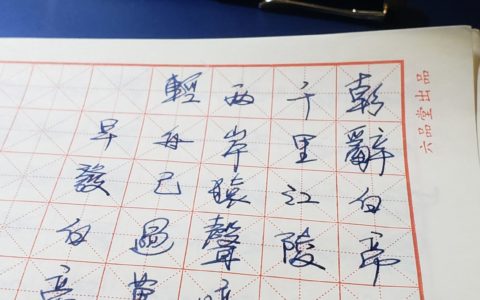 六品堂出品
朝辭白帝
千里江陵
两岸猿聲
輕舟已過
早發白帝